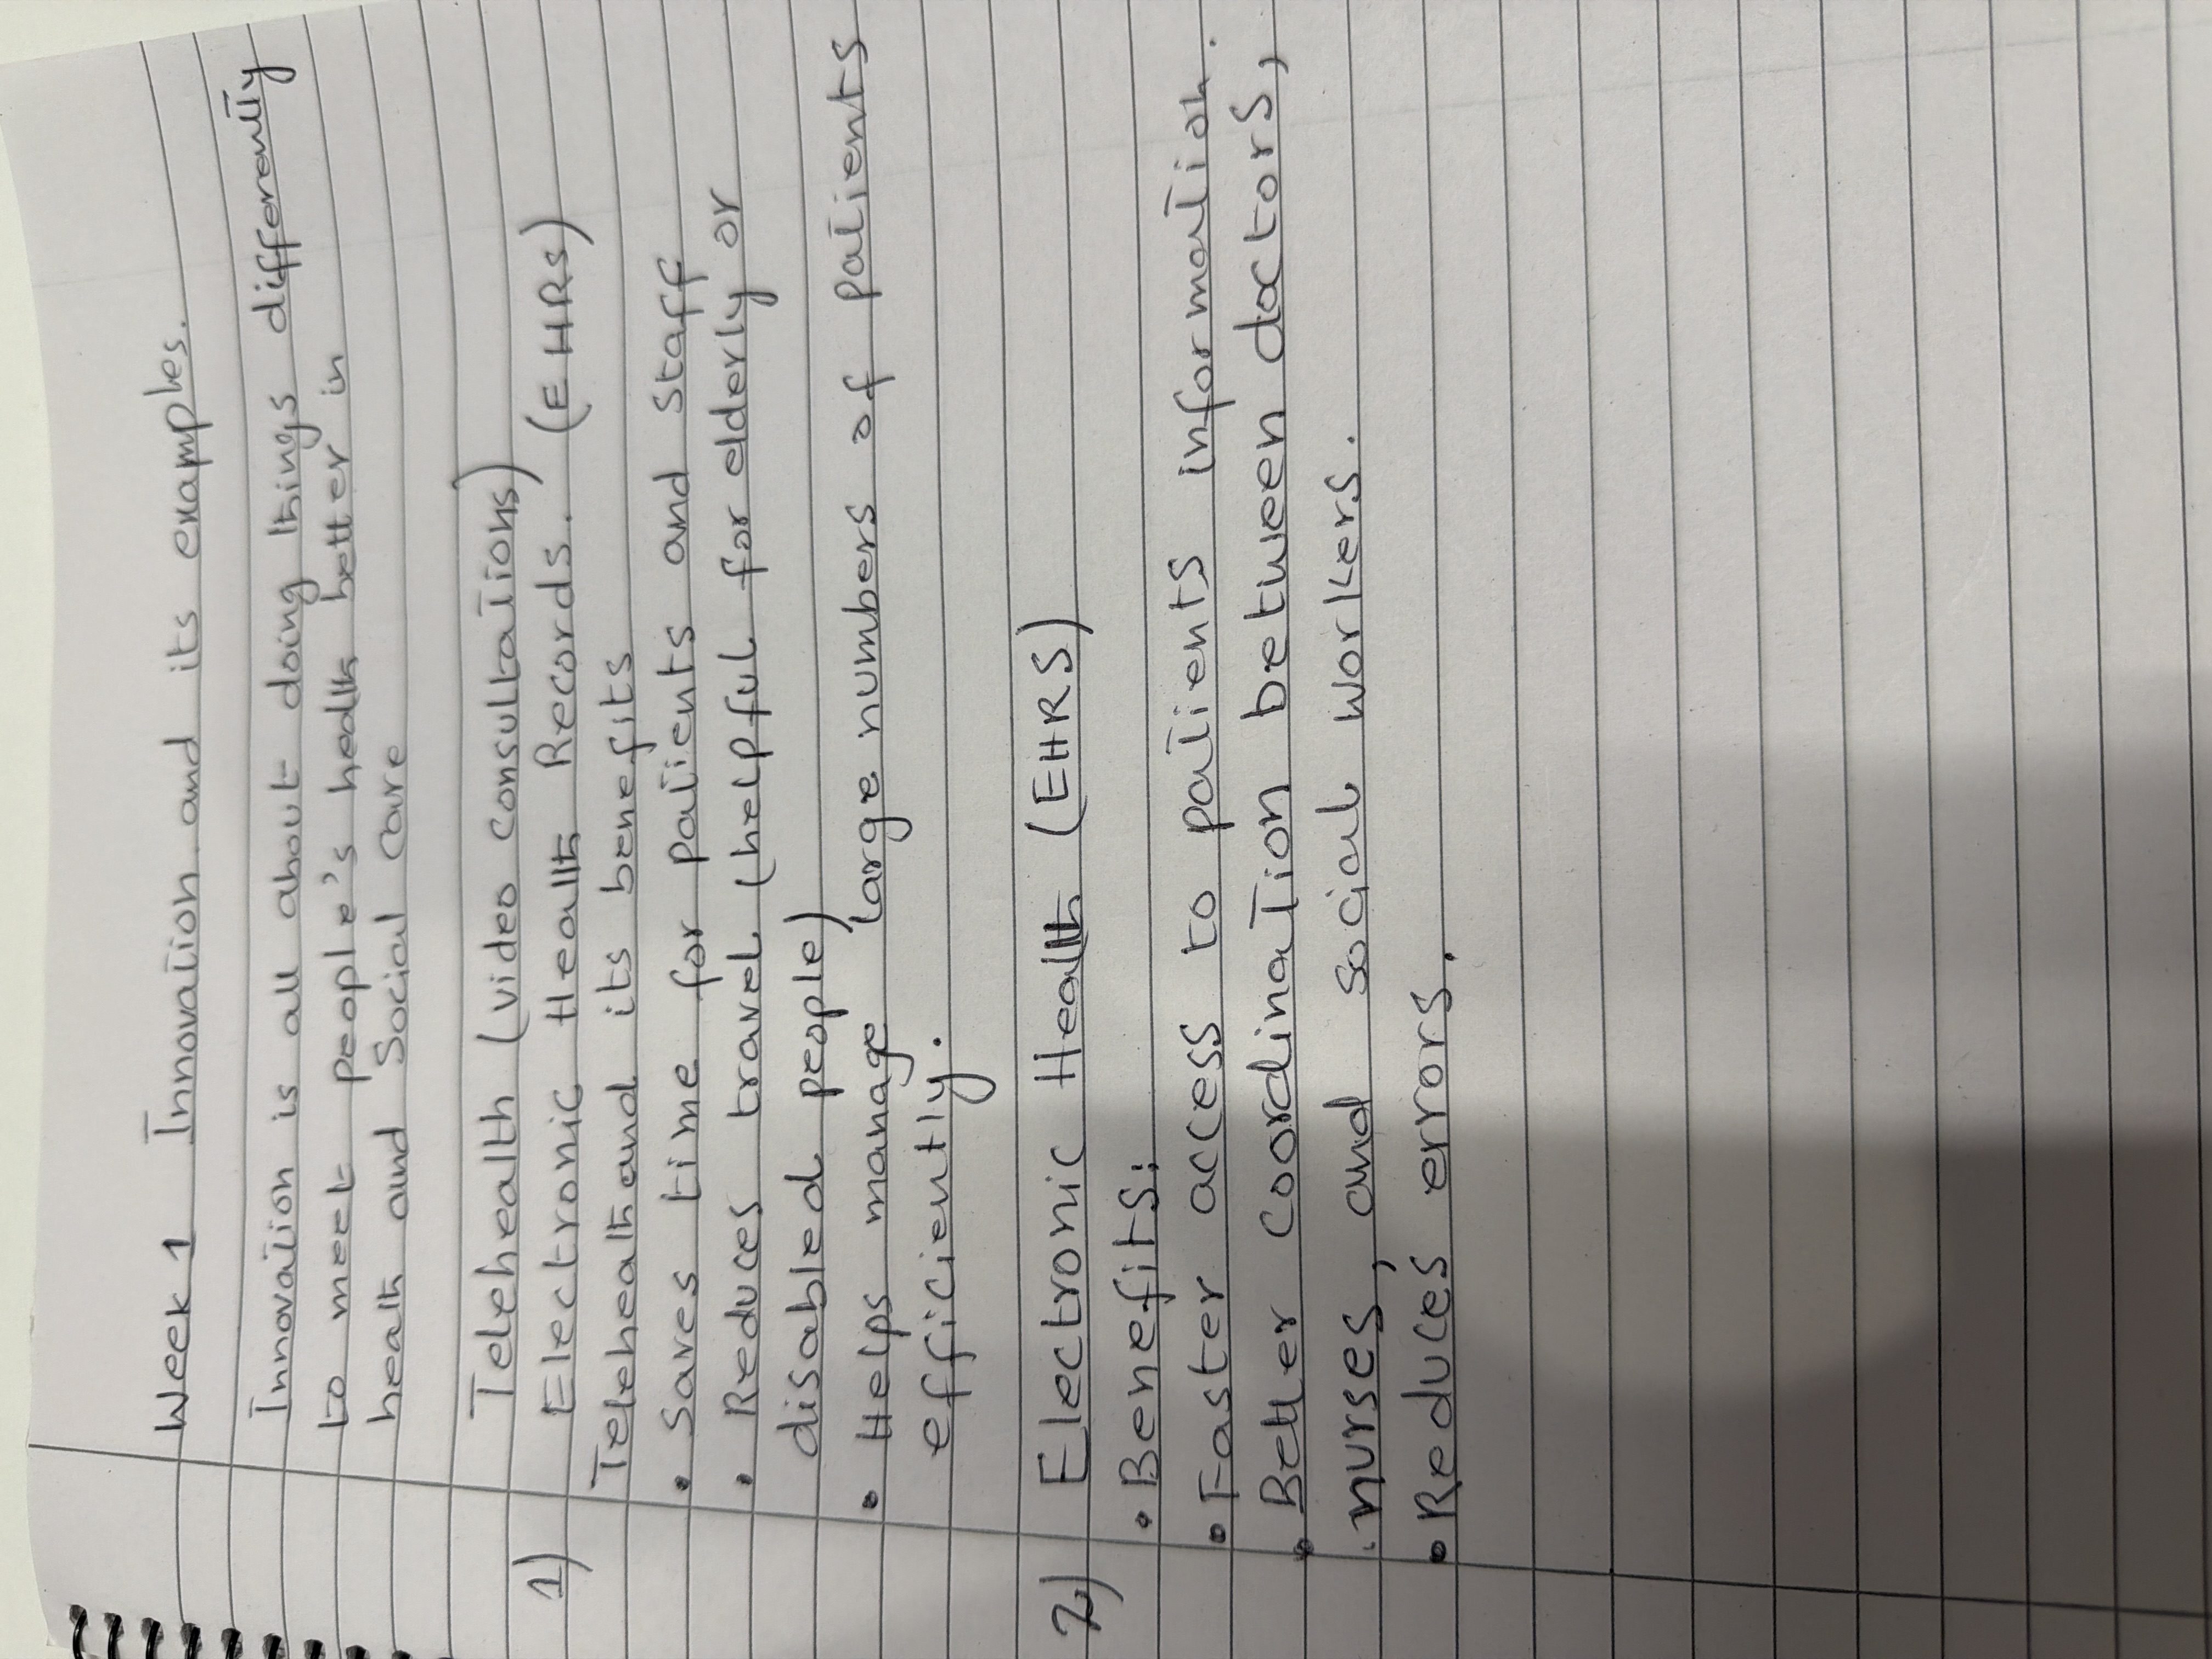 Week 1 Innovation and its examples.
Innovation is all about doing things differently
to meet people's health better in
health and Social Care
Telehealth (video consultations)
1) Electronic Health Records. (EHRs)
Telehealth and its benefits
• Saves time for patients and staff
• Reduces travel (helpful for elderly or
disabled people)
• Helps manage large numbers of patients
efficiently.
2) Electronic Health (EHRS)
• Benefits:
• Faster access to patients information.
• Better coordination between doctors,
nurses, and social workers.
• Reduces errors.